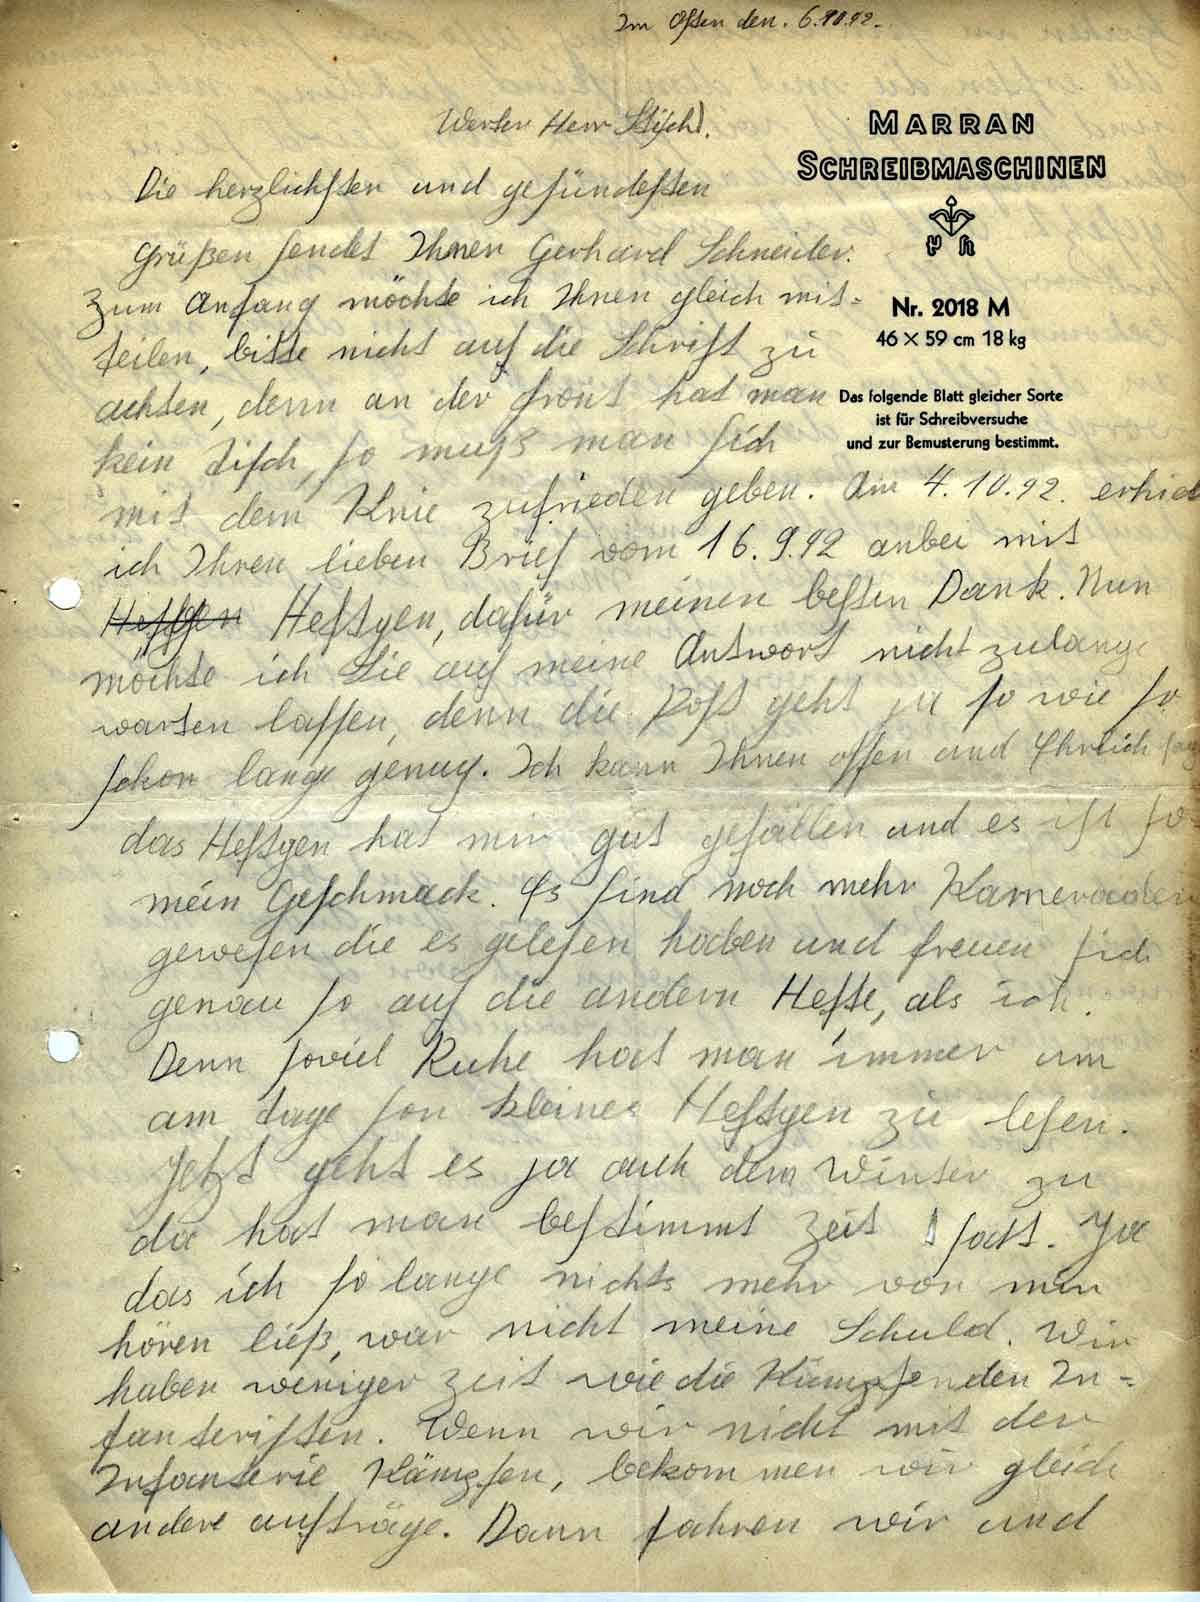 Im Osten den. 6.10.42.
Werter Herr
MARRAN
SCHREIBMASCHINEN
Nr. 2018 M
46 × 59 cm 18 kg
Das folgende Blatt gleicher Sorte
ist für Schreibversuche
und zur Bemusterung bestimmt.
Die herzlichsten und gesündesten
Grüßen sendet Ihnen Gerhard Schneider.
Zum Anfang möchte ich Ihnen gleich mit=
teilen, bitte nicht auf die Schrift zu
achten, denn an der Front hat man
kein Tisch, so muß man sich
mit dem Knie zufrieden geben. Am 4.10.42. erhiel
ich Ihren lieben Brief vom 16.9.42 anbei mit
Heftgen Heftgen, dafür meinen besten Dank. Nun
möchte ich Sie auf meine Antwort nicht zulange
warten lassen, denn die Post geht ja so wie so
schon lange genug. Ich kann Ihnen offen und Ehrlich sag
das Heftgen hat mir gut gefallen und es ist so
mein Geschmack. Es sind noch mehr Kameraaden
gewesen die es gelesen haben und freuen sich
genau so auf die andern Hefte, als ich.
Denn soviel Ruhe hat man immer um
am tage son kleines Heftgen zu lesen.
Jetzt geht es ja auch dem Winter zu
da hat man bestimmt Zeit satt. Ja
das ich so lange nichts mehr von mir
hören ließ, war nicht meine Schuld. Wir
haben weniger Zeit wie die Kämpfenden In=
fanteristen. Wenn wir nicht mit der
Infanterie Kämpfen, bekommen wir gleich
andere aufträge. Dann fahren wir und